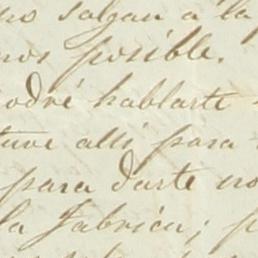 no salgan á la
nos posible.
podré hablarte
tuve alli para
para darte no
la fabrica; p